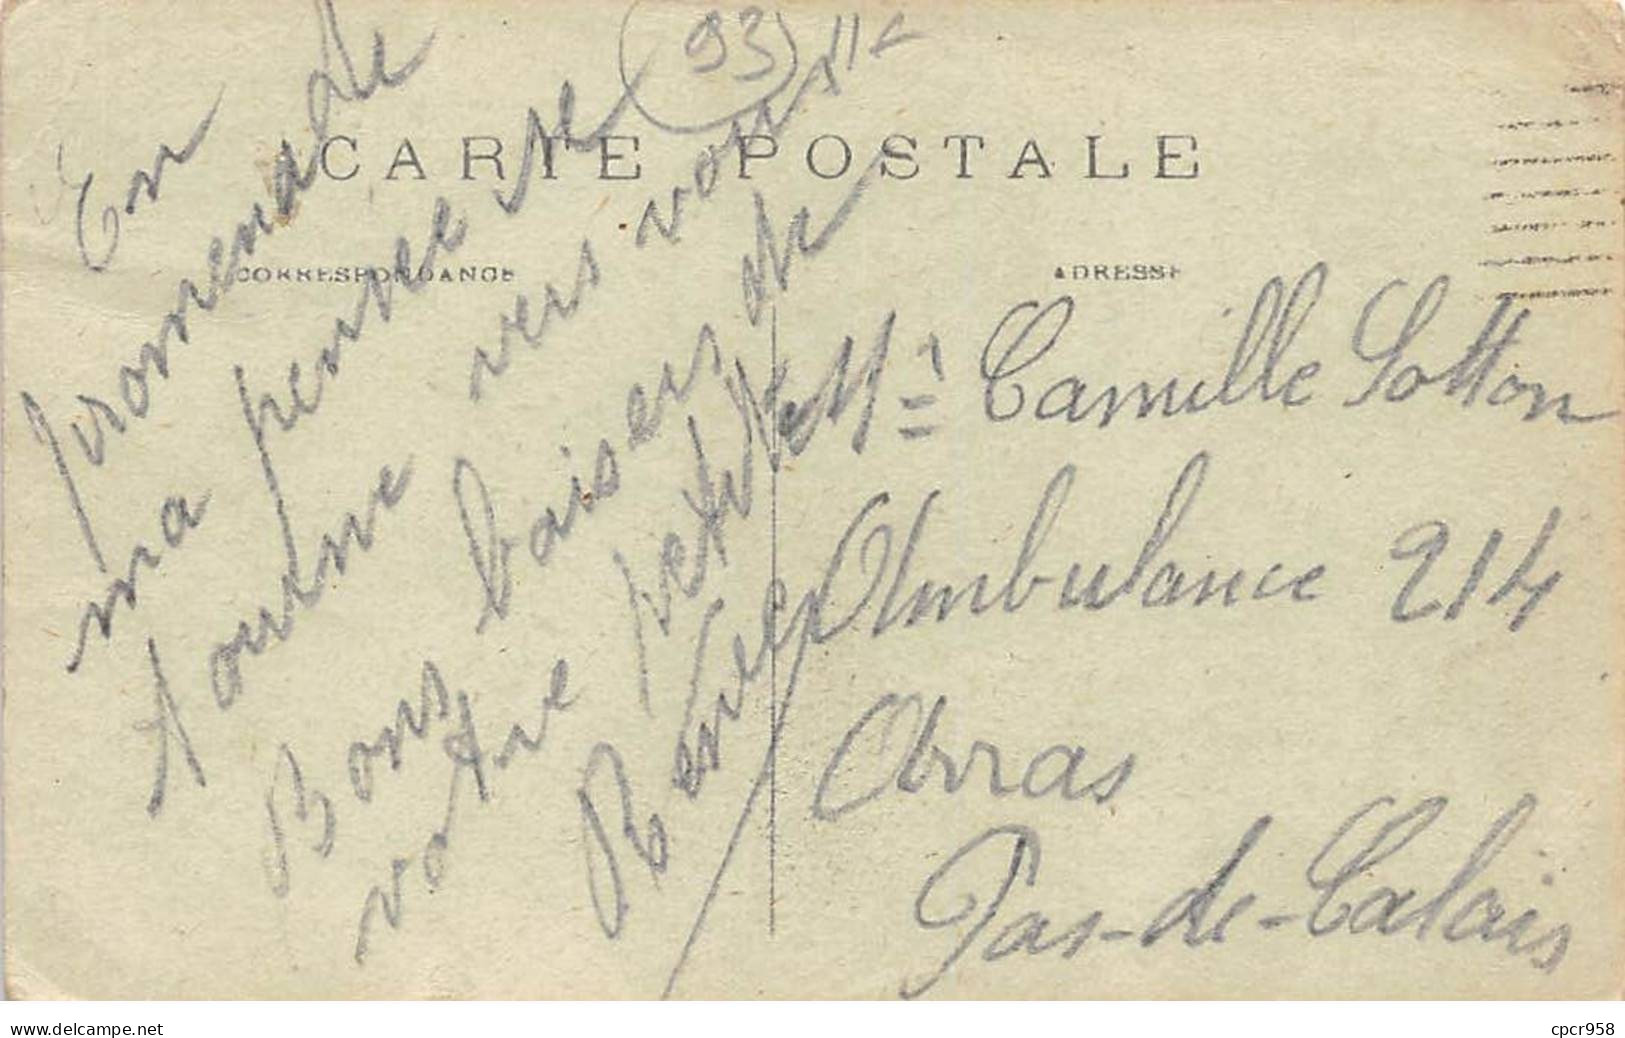 (93) 11€
CARTE POSTALE
CORRESPONDANCE
ADRESSE
En
promenade
ma pensée se
tourne vers vous
Bons baisers de
votre petite
Renée
Mr Camille Sotton
Ambulance 214
Arras
Pas-de-Calais
www.delcampe.net
cpcr958